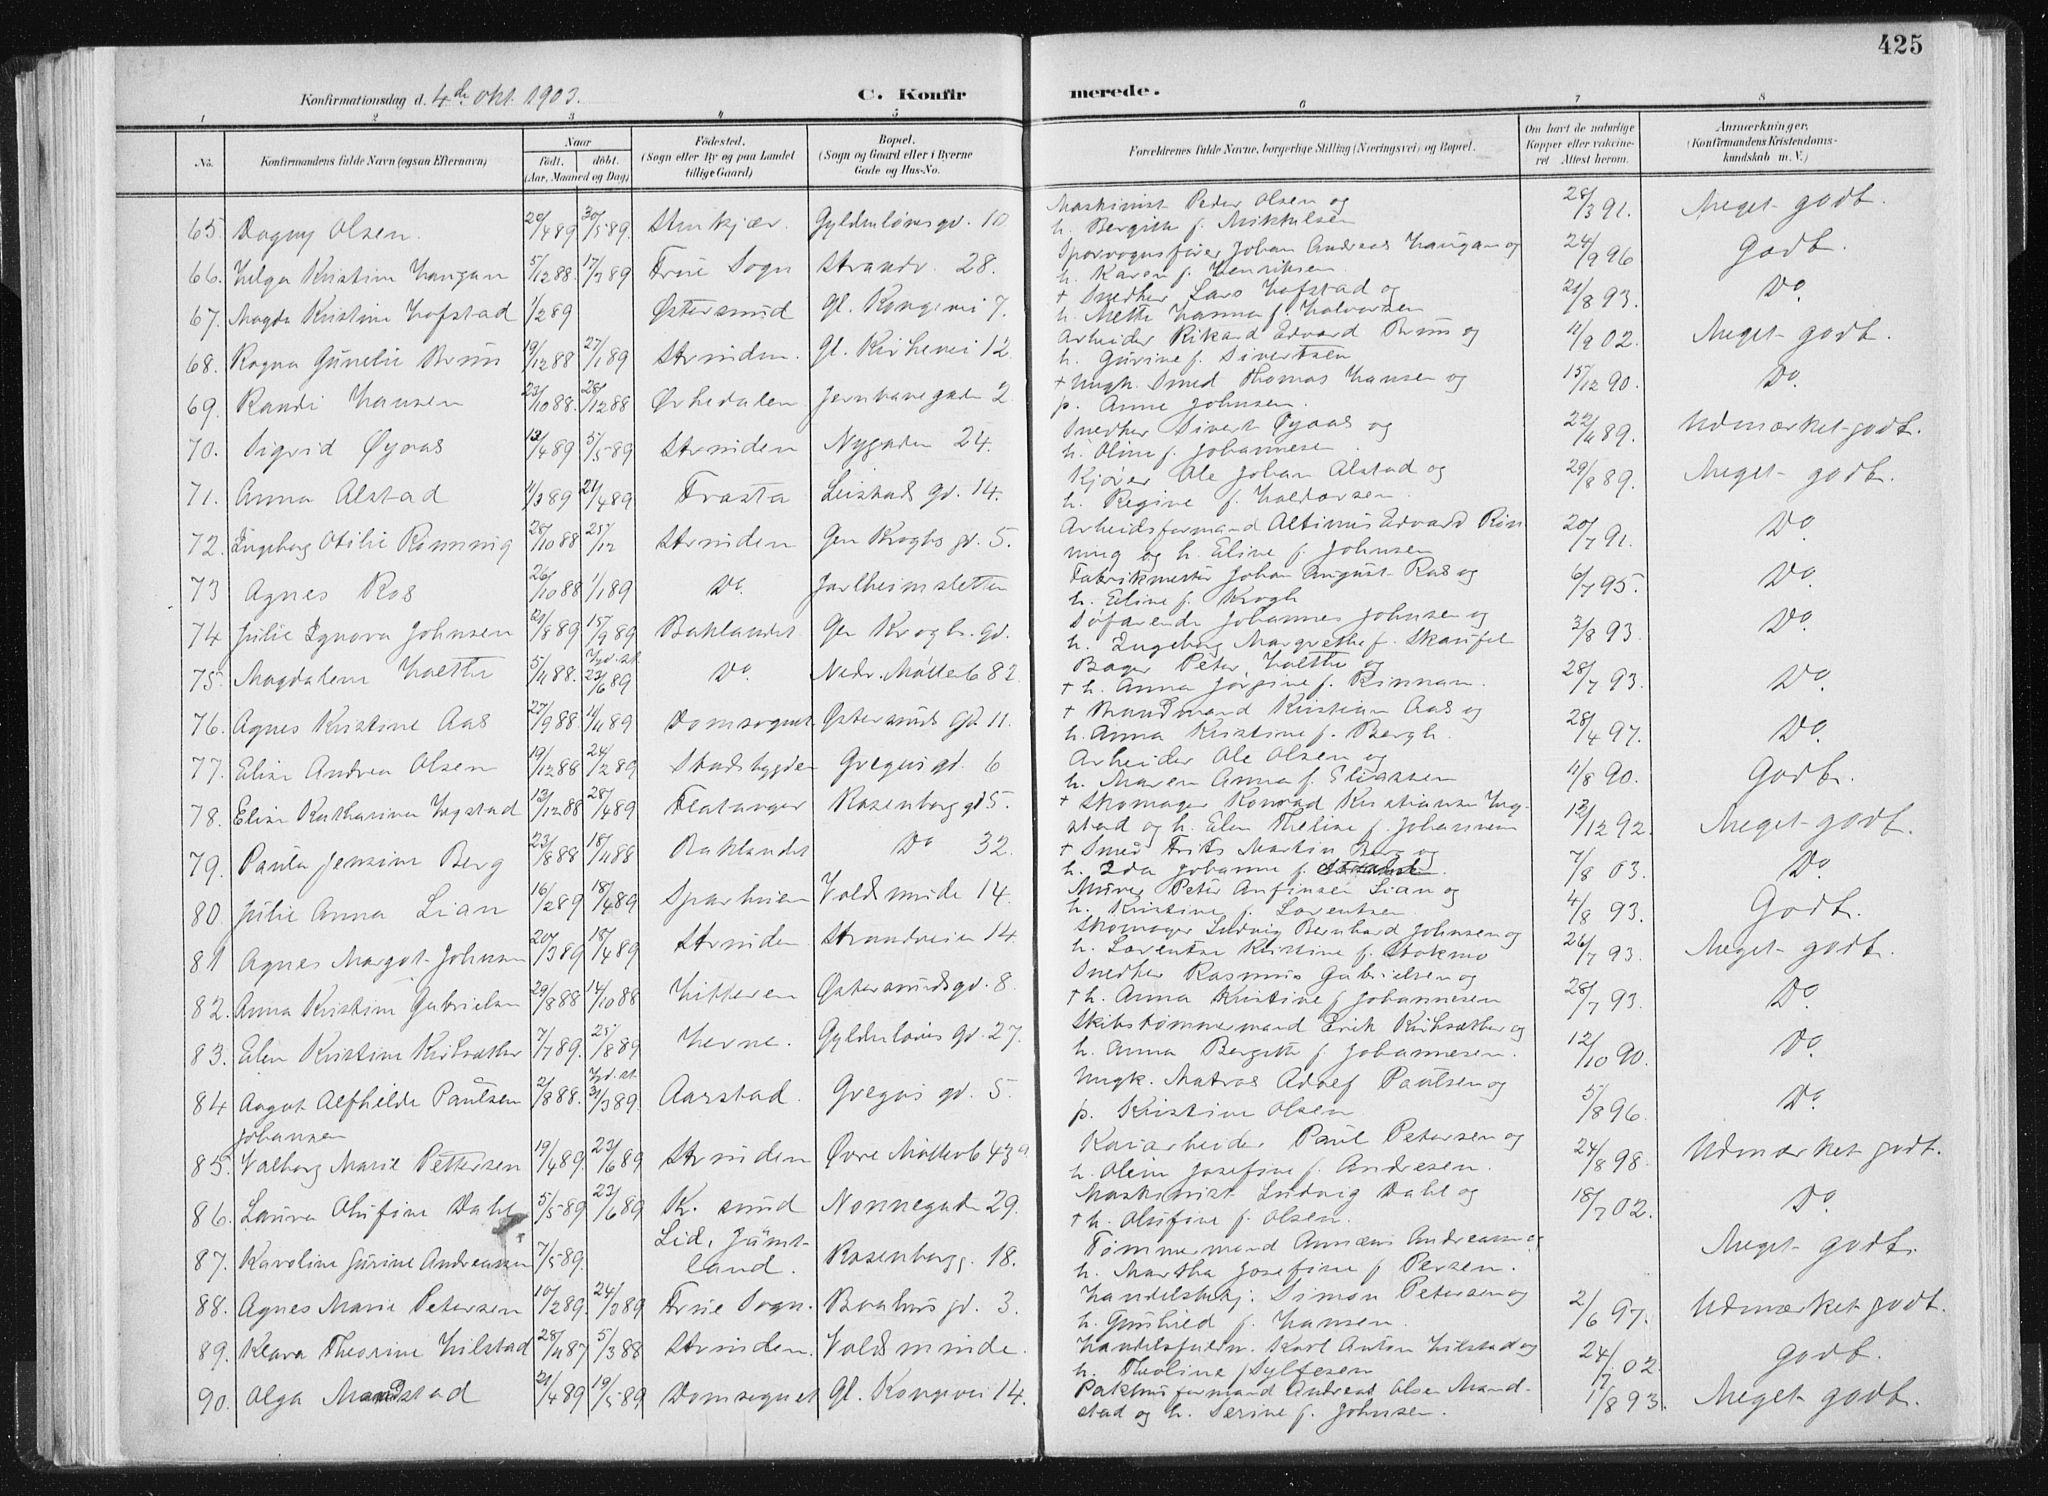 425
Konfirmationsdag d. 4de okt. 1903.
C. Konfirmerede.
1 2 3 4 5 6 7 8
No. Konfirmandens fulde Navn (ogsaa Efternavn) Naar født. døbt. (Aar, Maaned og Dag) Fødested. (Sogn eller By og paa Landet tillige Gaard) Bopæl. (Sogn og Gaard eller i Byerne Gade og Hus-No. Forældrenes fulde Navne, borgerlige Stilling (Næringsvei) og Bopæl. Om havt de naturlige Kopper eller vaccineret Attest herom. Anmærkninger. (Konfirmandens Kristendomskundskab m. V.)
65. Dagny Olsen. 20/4 89 30/5 89. Stenkjær. Gyldenløvesgd. 10 Maskinist Peder Olsen og h. Bergith f. Mikkelsen 28/3 91. Meget godt.
66. Helga Kristine Haugan 5/12 88. 17/3 89 Frue Sogn Strandv. 28. Sporvognsfører Johan Andreas Haugan og h. Karen f. Henriksen. 24/9 96 Godt.
67. Magda Kristine Hofstad 1/2 89 Østersund gl. Kongevei 7. + Snedker Lars Hofstad og h. Mette Hanna f. Halvorsen 21/8 93. Do.
68. Ragna Gunelie Bruun 19/12 88 27/1 89 Strinden. Gl. Kirkevei 12. Arbeider Rikard Edvard Bruun og h. Gurine f. Sivertsen 11/9 02. Meget godt.
69. Randi Hansen 23/10 88. 28/12 88 Ørkedalen Jernbanegaden 2 + Ungk. Smed Thomas Hansen og p. Anne Johnsen. 15/12 90. Do.
70. Sigrid Øyaas 13/4 89 5/5 89 Strinden Nygaden 24. Snedker Sivert Øyaas og h. Oline f. Johannesen 22/4 89. Udmærket godt.
71. Anna Alstad 11/3 89 21/4 89 Frosta Leistads gd. 14. Kjører Ole Johan Alstad og h. Regine f. Haldorsen. 29/8 89. Meget godt.
72. Ingeborg Otilie Rønning 28/10 88 25/12 Strinden Gen Kroghs gd. 5. Arbeidsformand Altinius Edvard Rønning og h. Eline f. Johnsen 20/7 91. Do
73 Agnes Ros 26/10 88 1/1 89 Do. Jarlheimsletten Fabrikmester Johan August Ros og h. Eline f. Krogh 6/7 95. Do
74 Julie Johnsen 21/8 89 15/9 89 Baklandet Gen Kroghs. gd. Søfarende Johannes Johnsen og h. Ingeborg Margrethe f. 3/8 93. Do.
75. Magdalene Holthe 5/4 88. 23/6 89 Do Nedr. Møllenb 82. Bager Peter Holthe og + h. Anna Jørgine f. Rinnan. 28/7 93. Do.
76. Agnes Kristine Aas 27/9 88 Domsognet. Østersunds Gd. 11. + Brandmand Kristian Aas og h. Anna Kristine f. Bergh. 28/4 97. Do.
77. Elise Andrea Olsen 19/12 88 24/2 89 Stadsbygden Gregus gd. 6 Arbeider Ole Olsen og h. Maren Anna f. Eliassen 4/8 90. Godt.
78. Elise Katharina Hegstad 13/12 88 28/4 89 Flatanger Rosenborg gd 5. + Skomager Konrad Kristiansen Hegstad og h. Elen Theline f. Johannesen 13/12 92. Meget godt.
79. Paula Jensine Berg 23/8 88 18/4 88 Baklandet Do 32. + Smed Frits Martin Berg og h. Ida Johanne f. 7/8 03. Do.
80. Julie Anna Lian 16/2 89 18/4 89 Sparbuen Voldsminde 14. Murer Peter Anfinsen Lian og h. Kristine f. Lorentsen 4/8 93. Godt.
81 Agnes Margot Johnsen 20/3 89 18/4 89 Strinden Strandveien 14. Skomager Ludvig Bernhard Johnsen og h. Lorentse Kristine f. Stokmo 26/7 93. Meget godt.
82. Anna Kristine Gabrielsen 29/8 88 14/10 88 Hitteren Østersundsgd. 8. Snedker Rasmus Gabrielsen og + h. Anna Kristine f Johannesen 28/7 93. Do.
83. Elen Kristine Kirksæther 7/7 89. 25/8 89 Hevne. Gyldenløves gd. 27. Skibstømmermand Erik Kirksæther og h. Anna Bergith f. Johannesen. 12/10 90. Do
84 Aagot Alfhilde Paulsen Johansen 2/8 88. 31/3 89. Aarstad. Gregus gd. 5. Ungk. Matros Adolf Paulsen og p. Kristine Olsen 5/8 96. Do.
85. Valborg Marie Pettersen 19/4 89. 23/6 89 Strinden Øvre Møllenb 43a Kaiarbeider Paul Petersen og h. Oline Josefine f. Andresen. 24/8 98. Udmærket godt.
86. Laura Olufine Dahl 5/5 89 23/6 89 K. sund Nonnegaden 29. Maskinist Ludvig Dahl og + h. Olufine f. Olsen. 18/7 02. Do
87. Karoline Gurine Andreasen 7/5 89. Lid, Jämtland. Rosenborgg. 18. Tømmermand Andreasen og h. Martha Josefine f Persen. Meget godt.
88. Agnes Marie Petersen 10/2 89. 24/3 89 Frue Sogn. Baahus gd. 3. Handelsbetj. Simon Petersen og h. Gunhild f. Hansen. 2/6 97. Udmærket godt.
89. Klara Theorine Hilstad 28/4 87 5/3 88 Strinden. Voldsminde. Handelsfuldm. Karl Anton Hilstad og h. Theoline f Sylfesen 24/7 02 Godt.
90. Olga Mandstad 21/4 89 19/5 89 Domsognet Gl. Kongevei 14. Pakhusformand Andreas Olsen Mandstad og h. Serine f. Johnsen. 1/8 93. Meget godt.